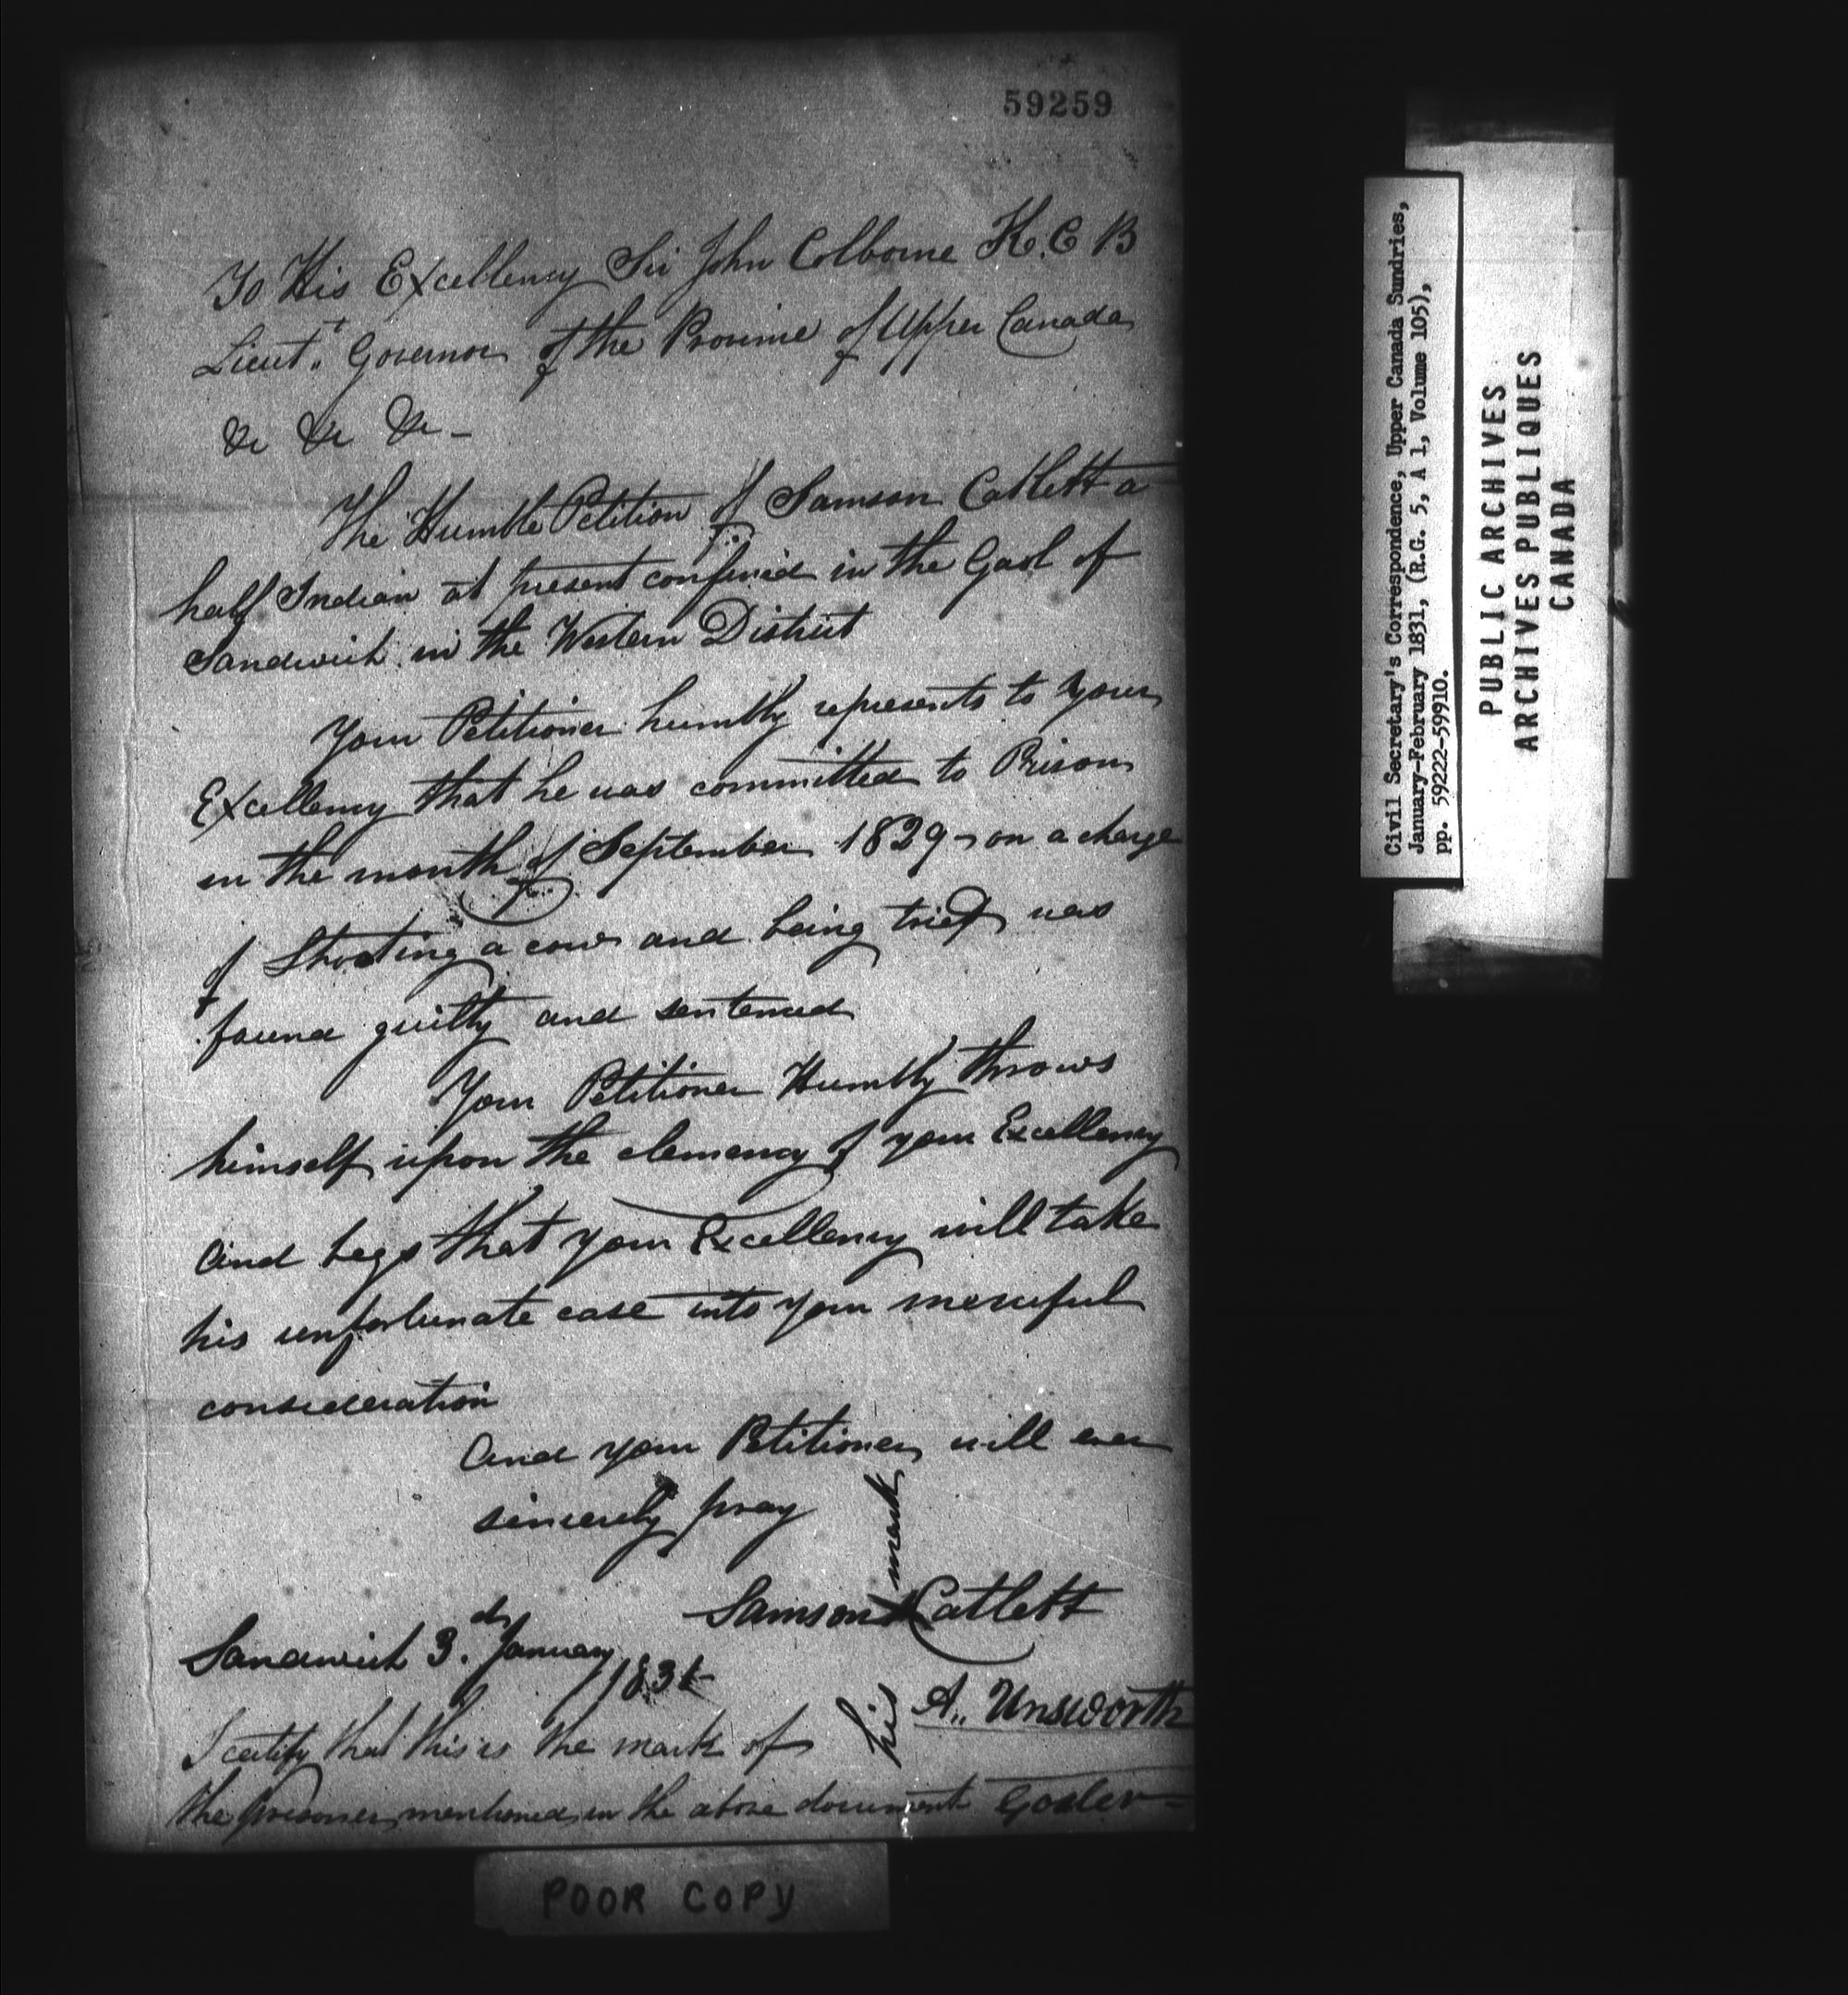 59259
To His Excellency Sir John Colborne K.C B
Lieut,,t Governor of the Province of Upper Canada
&c &c &c -
The Humble Petition of Samson Catlett a
half Indian at present confined in the Gaol of
Sandwich in the Western District
Your Petitioner humbly represents to Your
Excellency that he was committed to Prison
in the month of September 1829 - on a charge
of Shooting a cow and being tried was
found guilty and sentenced
Your Petitioner Humbly throws
himself upon the clemency of your Excellency
and begs that your Excellency will take
his unfortunate case into your merciful
consideration
And your Petitioner will ever
sincerely pray
Samson X Catlett
his
mark
Sandwich 3.d January
1831-
A,, Unsworth
I certify that this is the mark of
the prisoner mentioned in the above document Goaler -
POOR COPY
Civil Secretary's Correspondence, Upper Canada Sundries,
January-February 1831, (R.G. 5, A 1, Volume 105),
pp. 59222-59910.
PUBLIC ARCHIVES
ARCHIVES PUBLIQUES
CANADA